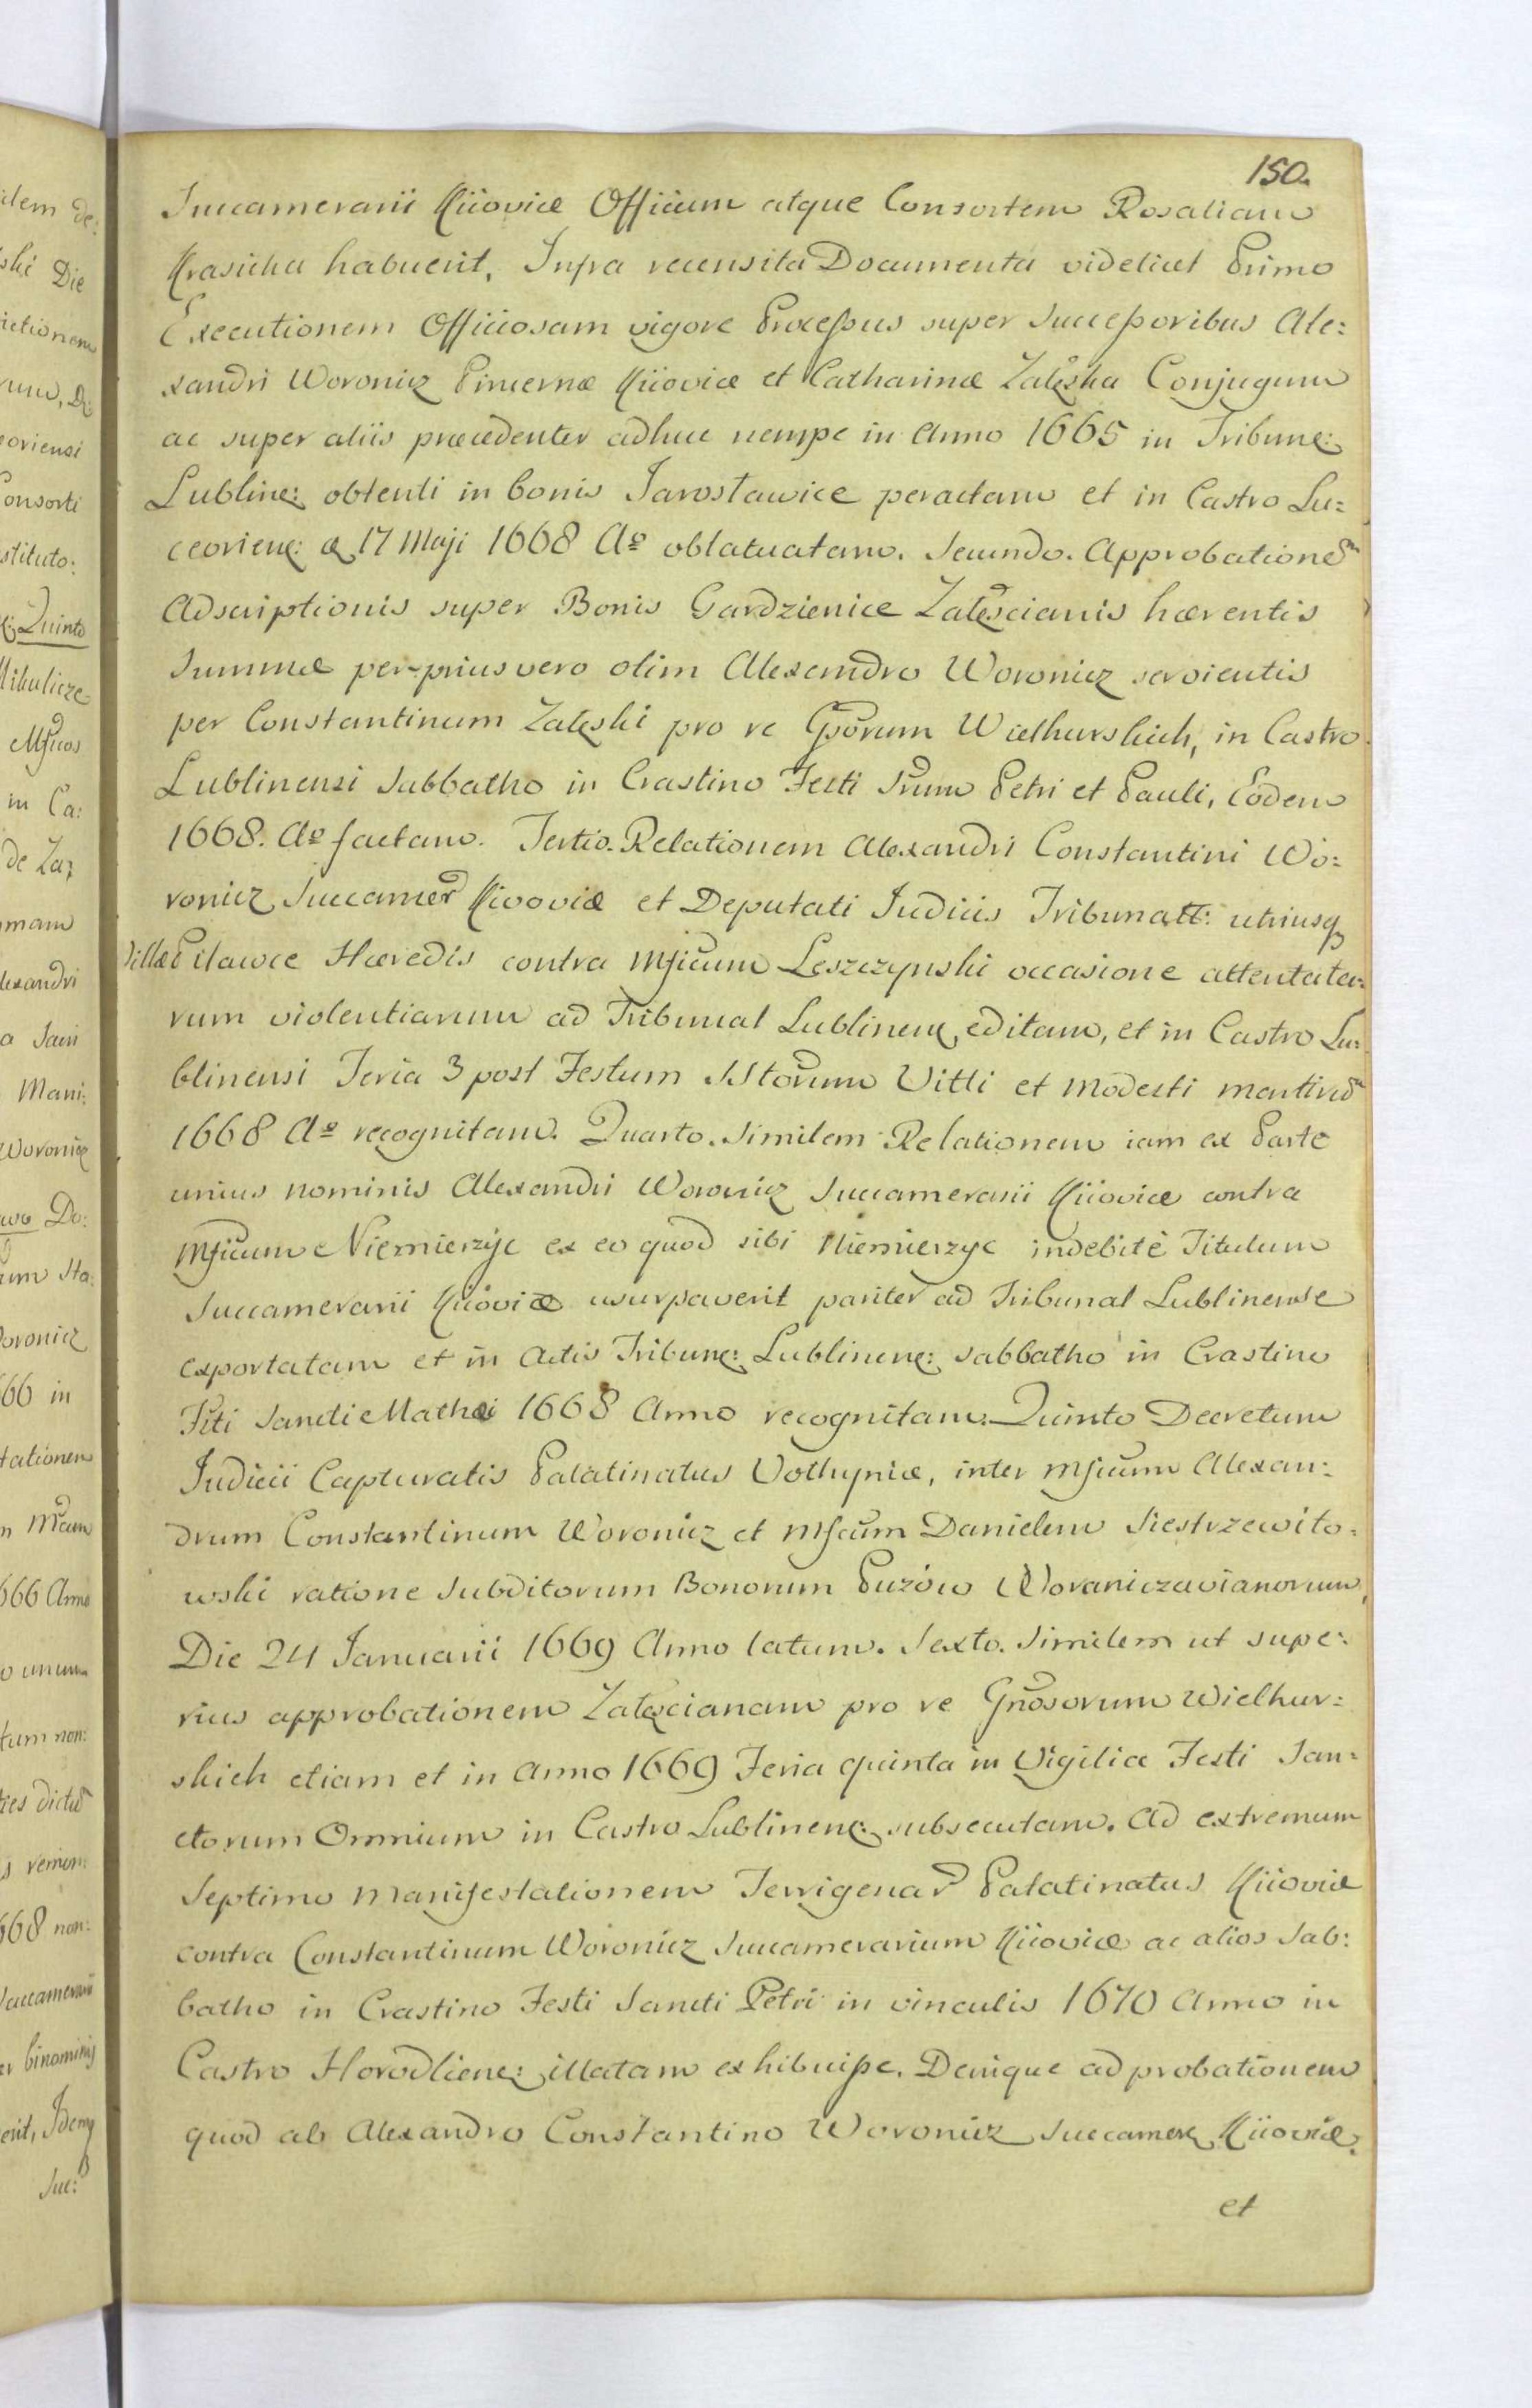 150.
Succamerarii Kiioviæ Officium atque Consortem Rosaliam
Krasicka habuerit, Infra recensita Documenta videlicet Primo
Executionem Officiosam vigore Processus super Successoribus Ale:
xandri Woronicz Pincernæ Kiioviæ et Catharinæ Zaleska Conjugum
ac super aliis præcedenter adhuc nempe in Anno 1665 in Tribune:
Lubline: obtenti in bonis Jarosławice peractam et in Castro Lu:
ceoriene: 17 Maji 1668 Aº oblatuatam. Secundo. Approbatione
Adscriptionis super Bonis Gardzienice Zalescianis hærentis
Summæ per-prius vero olim Alexandro Woronicz servientis
per Constantinum Zaleski pro re Gsorum Wielhurskich, in Castro
Lublinensi Sabbatho in Crastino Festi Srum Petri et Pauli, Eodem
1668. Aº factam. Tertio. Relationem Alexandri Constantini Wo:
ronicz Succamer Kiioviæ et Deputati Judicii Tribunatt: utriusq
Villæ Pilawce Hæredis contra Mficum Leszczynski occasione attentata:
rum violentiarum ad Tribunal Lublinene editam, et in Castro Lu:
blinensi Feria 3 post Festum SStorum Vitti et Modesti martirum
1668 Aº recognitam. Quarto. Similem Relationem iam ex Parte
unius nominis Alexandri Woronicz Succamerarii Kiioviæ contra
Mficum Niemierzyc ex eo quod sibi Niemierzyc indebitè Titulum
Succamerarii Kiioviæ usurpaverit pariter ad Tribunal Lublinense
exportatam et in Actis Tribune: Lublinene: Sabbatho in Crastino
Fsti Sancti Mathæi 1668 Anno recognitam. Quinto Decretum
Judicii Capturalis Palatinatus Volhyniæ, inter Mficum Alexan:
drum Constantinum Woronicz et Mficum Danielem Siestrzewito:
wski ratione Subditorum Bonorum Puzów Woraniczavianorum,
Die 24 Januarii 1669 Anno latum. Sexto. Similem ut supe:
rius approbationem Zalescianam pro re Gnosorum Wielhur:
skich etiam et in Anno 1669 Feria quinta in Vigilia Festi San:
ctorum Omnium in Castro Lublinene: subsecutam. Ad extremum
Septimo Manifestationem Terrigenar Palatinatus Kiioviæ
contra Constantinum Woronicz Succamerarium Kiioviæ ac alios Sab:
batho in Crastino Festi Sancti Petri in vinculis 1670 Anno in
Castro Horodliene: illatam exhibuisse. Denique ad probationem
quod ab Alexandro Constantino Woronicz Succamer Kiioviæ
et